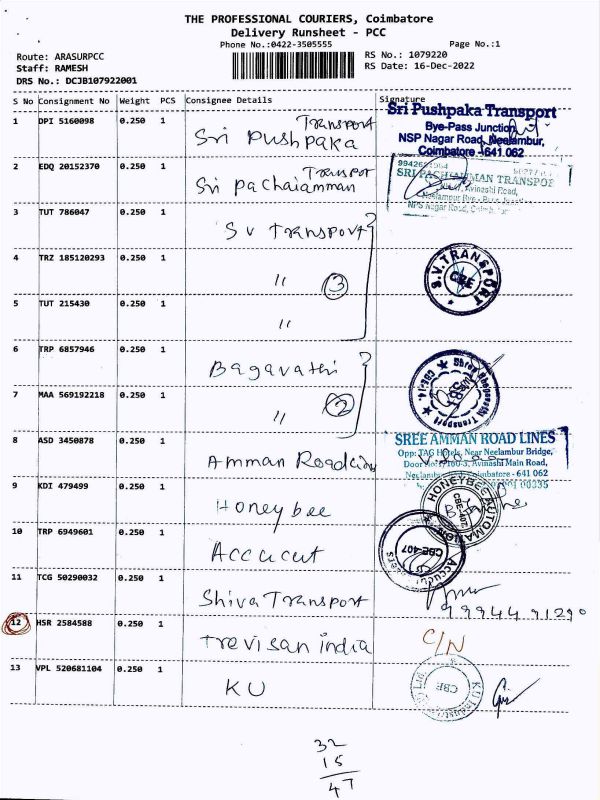 THE PROFESSIONAL COURIERS, Coimbatore
Delivery Runsheet - PCC
Phone No.:0422-3505555
Page No.:1
Route: ARASURPCC
RS No.: 1079220
Staff: RAMESH
RS Date: 16-Dec-2022
DRS No.: DCJB107922001
S No Consignment No Weight PCS Consignee Details Signature
1 DPI 5160098 0.250 1 Sri Pushpaka Transport
Sri Pushpaka Transport
Bye-Pass Junction,
NSP Nagar Road, Neelambur,
Coimbatore - 641 062
2 EDQ 20152370 0.250 1 Sri pachaiamman Transpor
SRI PACHAIAMMAN TRANSPOR
Avinashi Road,
Neelambur Bye - Pass
NPS Nagar Road,
3 TUT 786047 0.250 1 SV Transport
4 TRZ 185120293 0.250 1 " 3
S.V.TRANSPORT
CBE
5 TUT 215430 0.250 1 "
6 TRP 6857946 0.250 1 Bagavathi
Shree Bhagavathi Transport
7 MAA 569192218 0.250 1 " 2
8 ASD 3450878 0.250 1 Amman Roadlin
SREE AMMAN ROAD LINES
Opp: TAG Hotels, Near Neelambur Bridge,
Avinashi Main Road,
Coimbatore - 641 062
9 KDI 479499 0.250 1 Honeybee
HONEYBEE AUTOMATION
CBE-407.
10 TRP 6949601 0.250 1 Accucut
CBE-407
11 TCG 50290032 0.250 1 Shiva Transport
99944 91290
12 HSR 2584588 0.250 1 Trevisan india C/N
13 VPL 520681104 0.250 1 KU
CBE
32
15
47